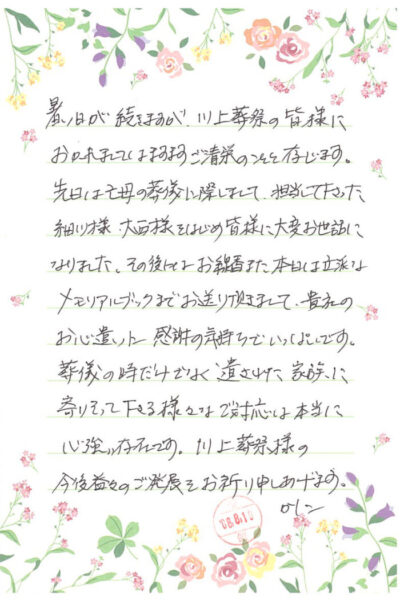 暑い日が続きますが、川上葬祭の皆様に
おかれましてはますますご清栄のことと存じます。
先日は亡母の葬儀に際しまして、担当して下さった
細川様、大西様をはじめ皆様に大変お世話に
なりました。その後にはお線香また本日は立派な
メモリアルブックまでお送り頂きまして、貴社の
お心遣いに感謝の気持ちでいっぱいです。
葬儀の時だけでなく遺された家族に
寄りそって下さる様々なご対応は本当に
心強い存在です。川上葬祭様の
今後益々のご発展をお祈り申しあげます。